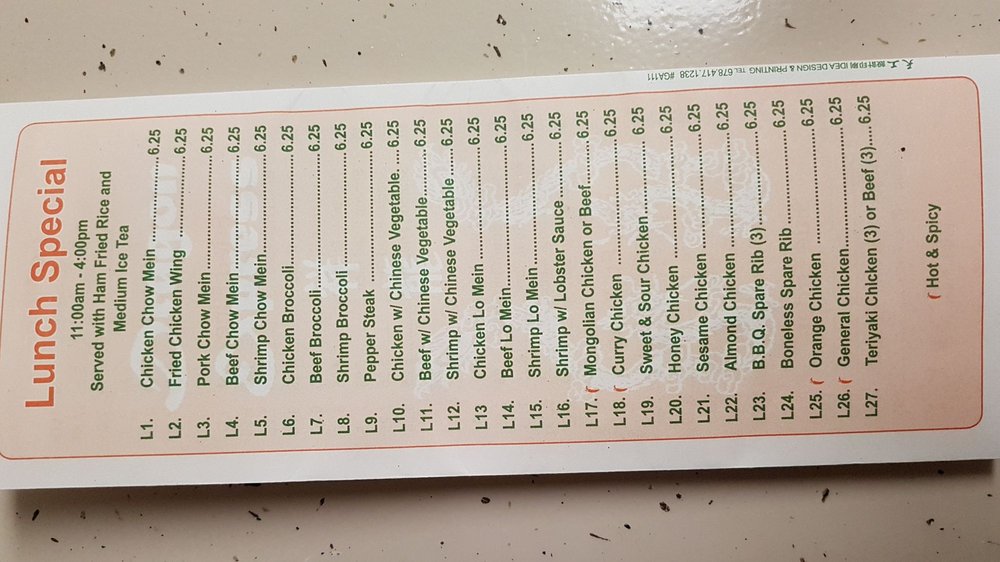 Lunch Special
11:00am - 4:00pm
Served with Ham Fried Rice and
Medium Ice Tea
L1. Chicken Chow Mein 6.25
L2. Fried Chicken Wing 6.25
L3. Pork Chow Mein 6.25
L4. Beef Chow Mein 6.25
L5. Shrimp Chow Mein 6.25
L6. Chicken Broccoli 6.25
L7. Beef Broccoli 6.25
L8. Shrimp Broccoli 6.25
L9. Pepper Steak 6.25
L10. Chicken w/ Chinese Vegetable 6.25
L11. Beef w/ Chinese Vegetable 6.25
L12. Shrimp w/ Chinese Vegetable 6.25
L13 Chicken Lo Mein 6.25
L14. Beef Lo Mein 6.25
L15. Shrimp Lo Mein 6.25
L16. Shrimp w/ Lobster Sauce 6.25
L17. Mongolian Chicken or Beef 6.25
L18. Curry Chicken 6.25
L19. Sweet & Sour Chicken 6.25
L20. Honey Chicken 6.25
L21. Sesame Chicken 6.25
L22. Almond Chicken 6.25
L23. B.B.Q. Spare Rib (3) 6.25
L24. Boneless Spare Rib 6.25
L25. Orange Chicken 6.25
L26. General Chicken 6.25
L27. Teriyaki Chicken (3) or Beef (3) 6.25
Hot & Spicy
天工 設計印刷 IDEA DESIGN & PRINTING TEL.678.417.1238 #GA111